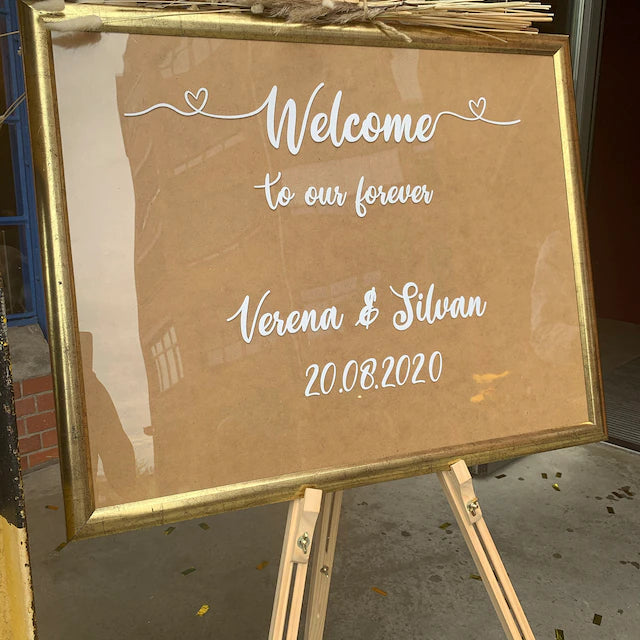 Welcome
to our forever
Verena & Silvan
20.08.2020